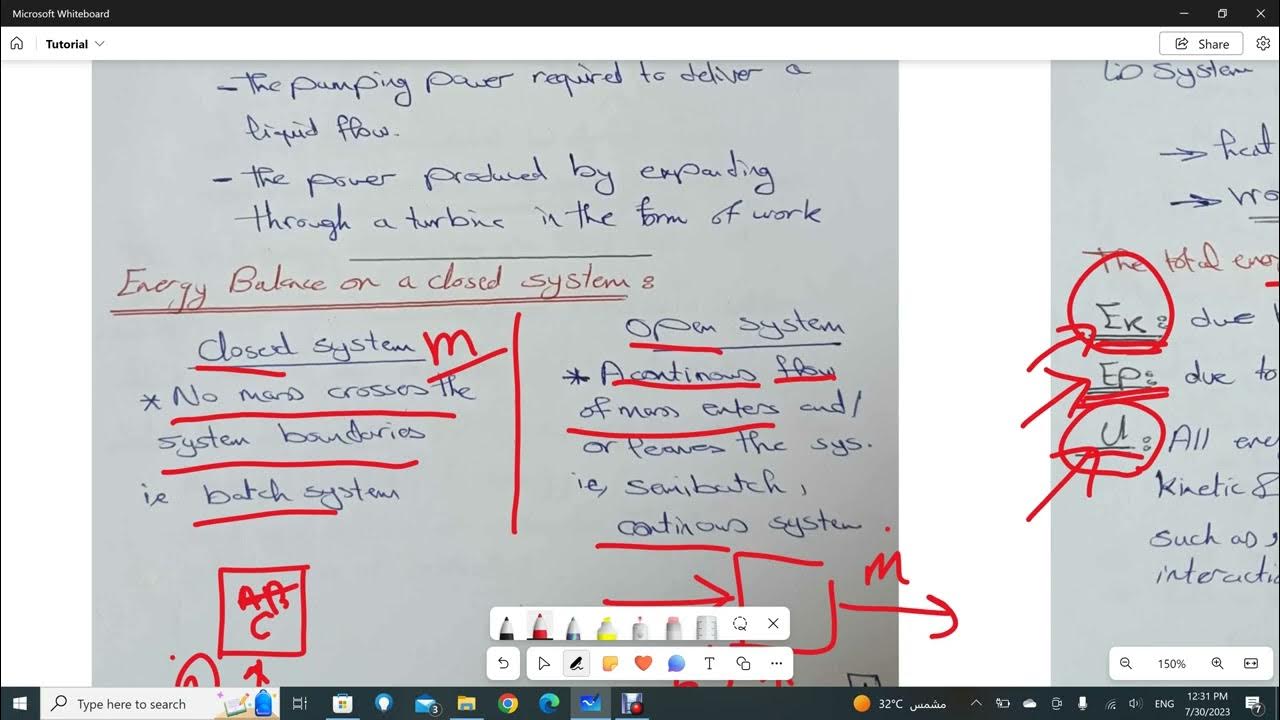 Microsoft Whiteboard
Tutorial
Share
- The pumping power required to deliver a
liquid flow.
- The power produced by expanding
through a turbine in the form of work
Energy Balance on a closed system:
Closed system m
* No mass crosses the
system boundaries
i.e batch system
A, B
C
open system
* A continous flow
of mass enters and/
or leaves the sys.
ie, semibatch,
continous system
ṁ
system
→ heat
→ wo
The total ener
EK: due
EP: due to
U: All ene
Kinetic &
such as
interacti
150%
Type here to search
3
32°C مشمس
ENG
12:31 PM
7/30/2023
7